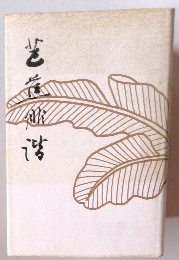 芭蕉俳諧